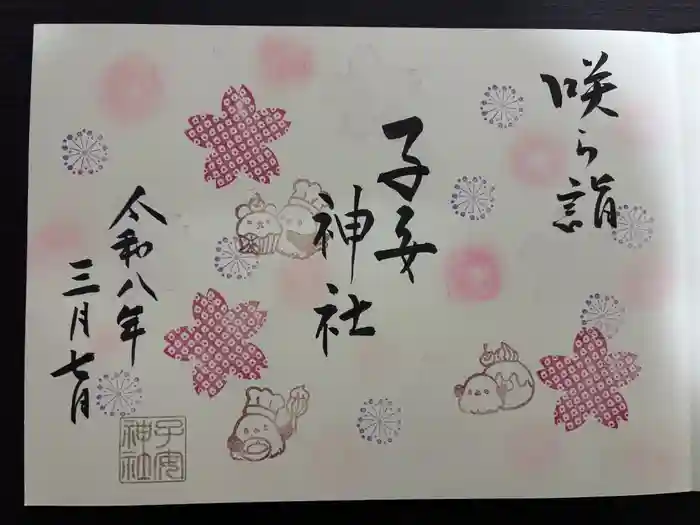 咲く詣
子安
神社
令和八年
三月七日
子安
神社